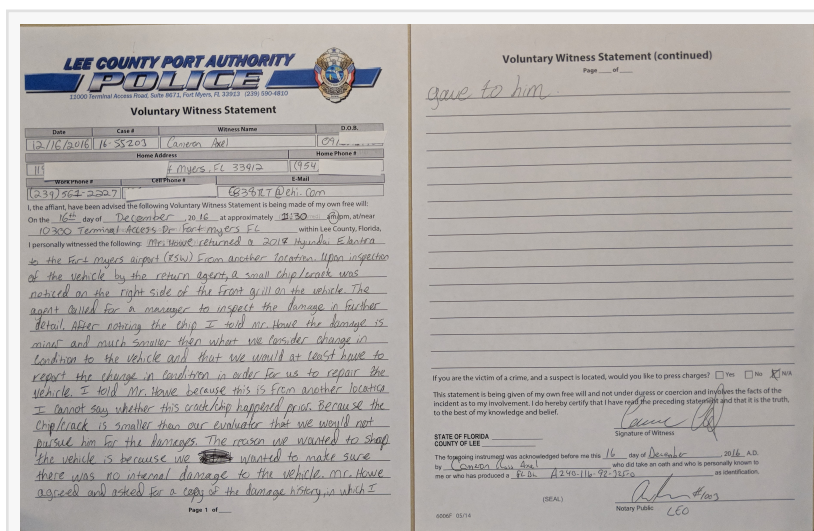 LEE COUNTY PORT AUTHORITY
POLICE
11000 Terminal Access Road, Suite 8671, Fort Myers, FL 33913 (239) 590-4810
Voluntary Witness Statement
Date Case # Witness Name D.O.B.
12/16/2016 16-55203 Cameron Axel 09/
Home Address Home Phone #
Myers, FL 33912 (954
Work Phone # Cell Phone # E-Mail
(239) 561-2227 @ehi.com
I, the affiant, have been advised the following Voluntary Witness Statement is being made of my own free will:
On the 16th day of December, 2016 at approximately 30 am/pm, at/near
10300 Terminal Access Dr Fort myers FL within Lee County, Florida,
I personally witnessed the following: Mr. Howe returned a Hyundai Elantra
to the Fort Myers airport (RSW) From another location. Upon inspection
of the vehicle by the return agent, a small chip/crack was
noticed on the right side of the front grill on the vehicle. The
agent called for a manager to inspect the damage in further
detail. After noticing the chip I told Mr. Howe the damage is
minor and much smaller then what we consider change in
condition to the vehicle and that we would at least have to
report the change in condition in order for us to repair the
vehicle. I told Mr. Howe because this is from another location
I cannot say whether this crack/chip happened prior. Because the
chip/crack is smaller than our evaluator that we would not
pursue him for the damages. The reason we wanted to shop
the vehicle is because we wanted to make sure
there was no internal damage to the vehicle. Mr. Howe
agreed and asked for a copy of the damage history, in which I
Page 1 of
Voluntary Witness Statement (continued)
Page of
gave to him.
If you are the victim of a crime, and a suspect is located, would you like to press charges? Yes No X N/A
This statement is being given of my own free will and not under duress or coercion and involves the facts of the
incident as to my involvement. I do hereby certify that I have read the preceding statement and that it is the truth,
to the best of my knowledge and belief.
Signature of Witness
STATE OF FLORIDA
COUNTY OF LEE
The foregoing instrument was acknowledged before me this 16 day of December, 2016 A.D.
by Axel who did take an oath and who is personally known to
me or who has produced a FLDL as identification.
(SEAL)
#1003
Notary Public LEO
6006F 05/14